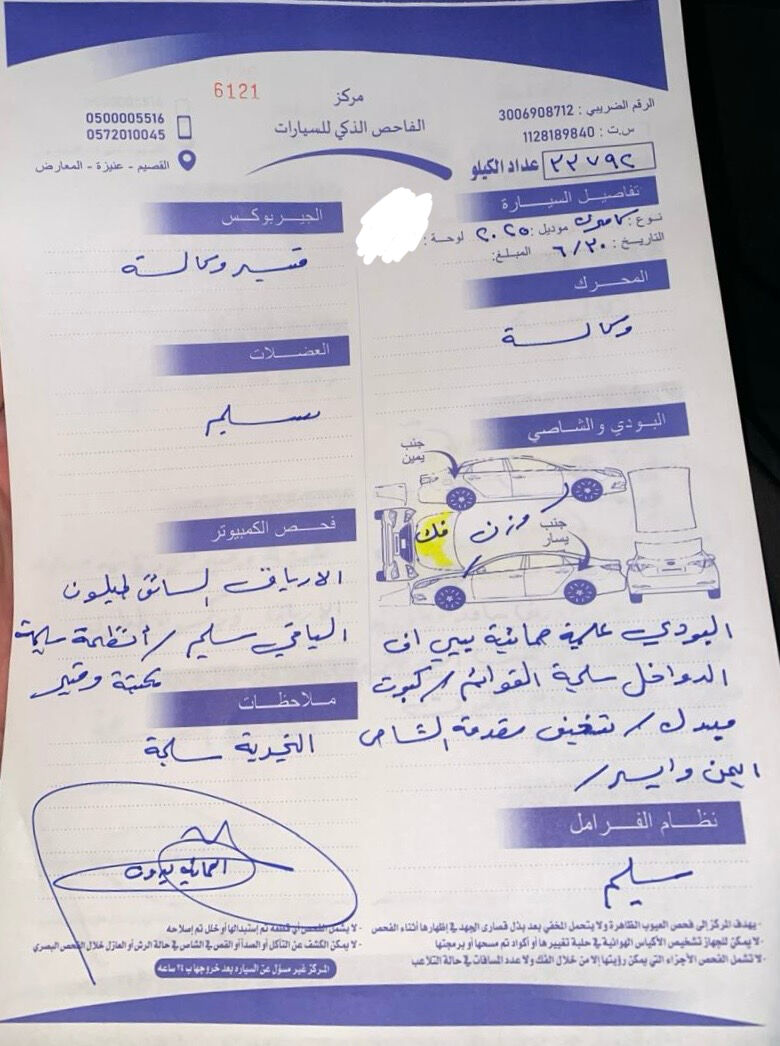 6121
مركز
الفاحص الذكي للسيارات
الرقم الضريبي : 3006908712
س.ت : 1128189840
عداد الكيلو ٢٢٧٩٢
0500005516
0572010045
القصيم - عنيزة - المعارض
تفاصيل السيارة
نوع : كامري موديل : ٢٠٢٥ لوحة :
التاريخ : ٦/٢٠ المبلغ:
المحرك
وكالة
البودي والشاصي
جنب يمين
وزن
فك
جنب يسار
البودي علمية حمائية بيبي اف
الدواخل سليمة القوائم / كبوت
مبدل / تتغنيف مقدمة الشاص
ايمن وايسر /
نظام الفرامل
سليم
الجيربوكس
قير وكالة
العضلات
سليم
فحص الكمبيوتر
الارياق السائق طبلون
الباقي سليم / أنظمة سليمة
مكينة وقير
ملاحظات
التجديد سليمة
- يهدف المركز إلى فحص العيوب الظاهرة ولا يتحمل المخفي بعد بذل قصارى الجهد في إظهارها أثناء الفحص
- لا يمكن للجهاز تشخيص الأكياس الهوائية في حلية تغييرها أو أكواد تم مسحها أو برمجتها
- لا تشمل الفحص الأجزاء التي يمكن رؤيتها إلا من خلال الفك ولا عدد المسافات في حالة التلاعب
- لا يشمل الفحص أي قطعة تم إستبدالها أو خلل تم إصلاحه
- لا يمكن الكشف عن التآكل أو الصدأ أو القص في الشاص في حالة الرش أو العازل خلال الفحص البصري
المركز غير مسؤل عن السياره بعد خروجها ب ٢٤ ساعه